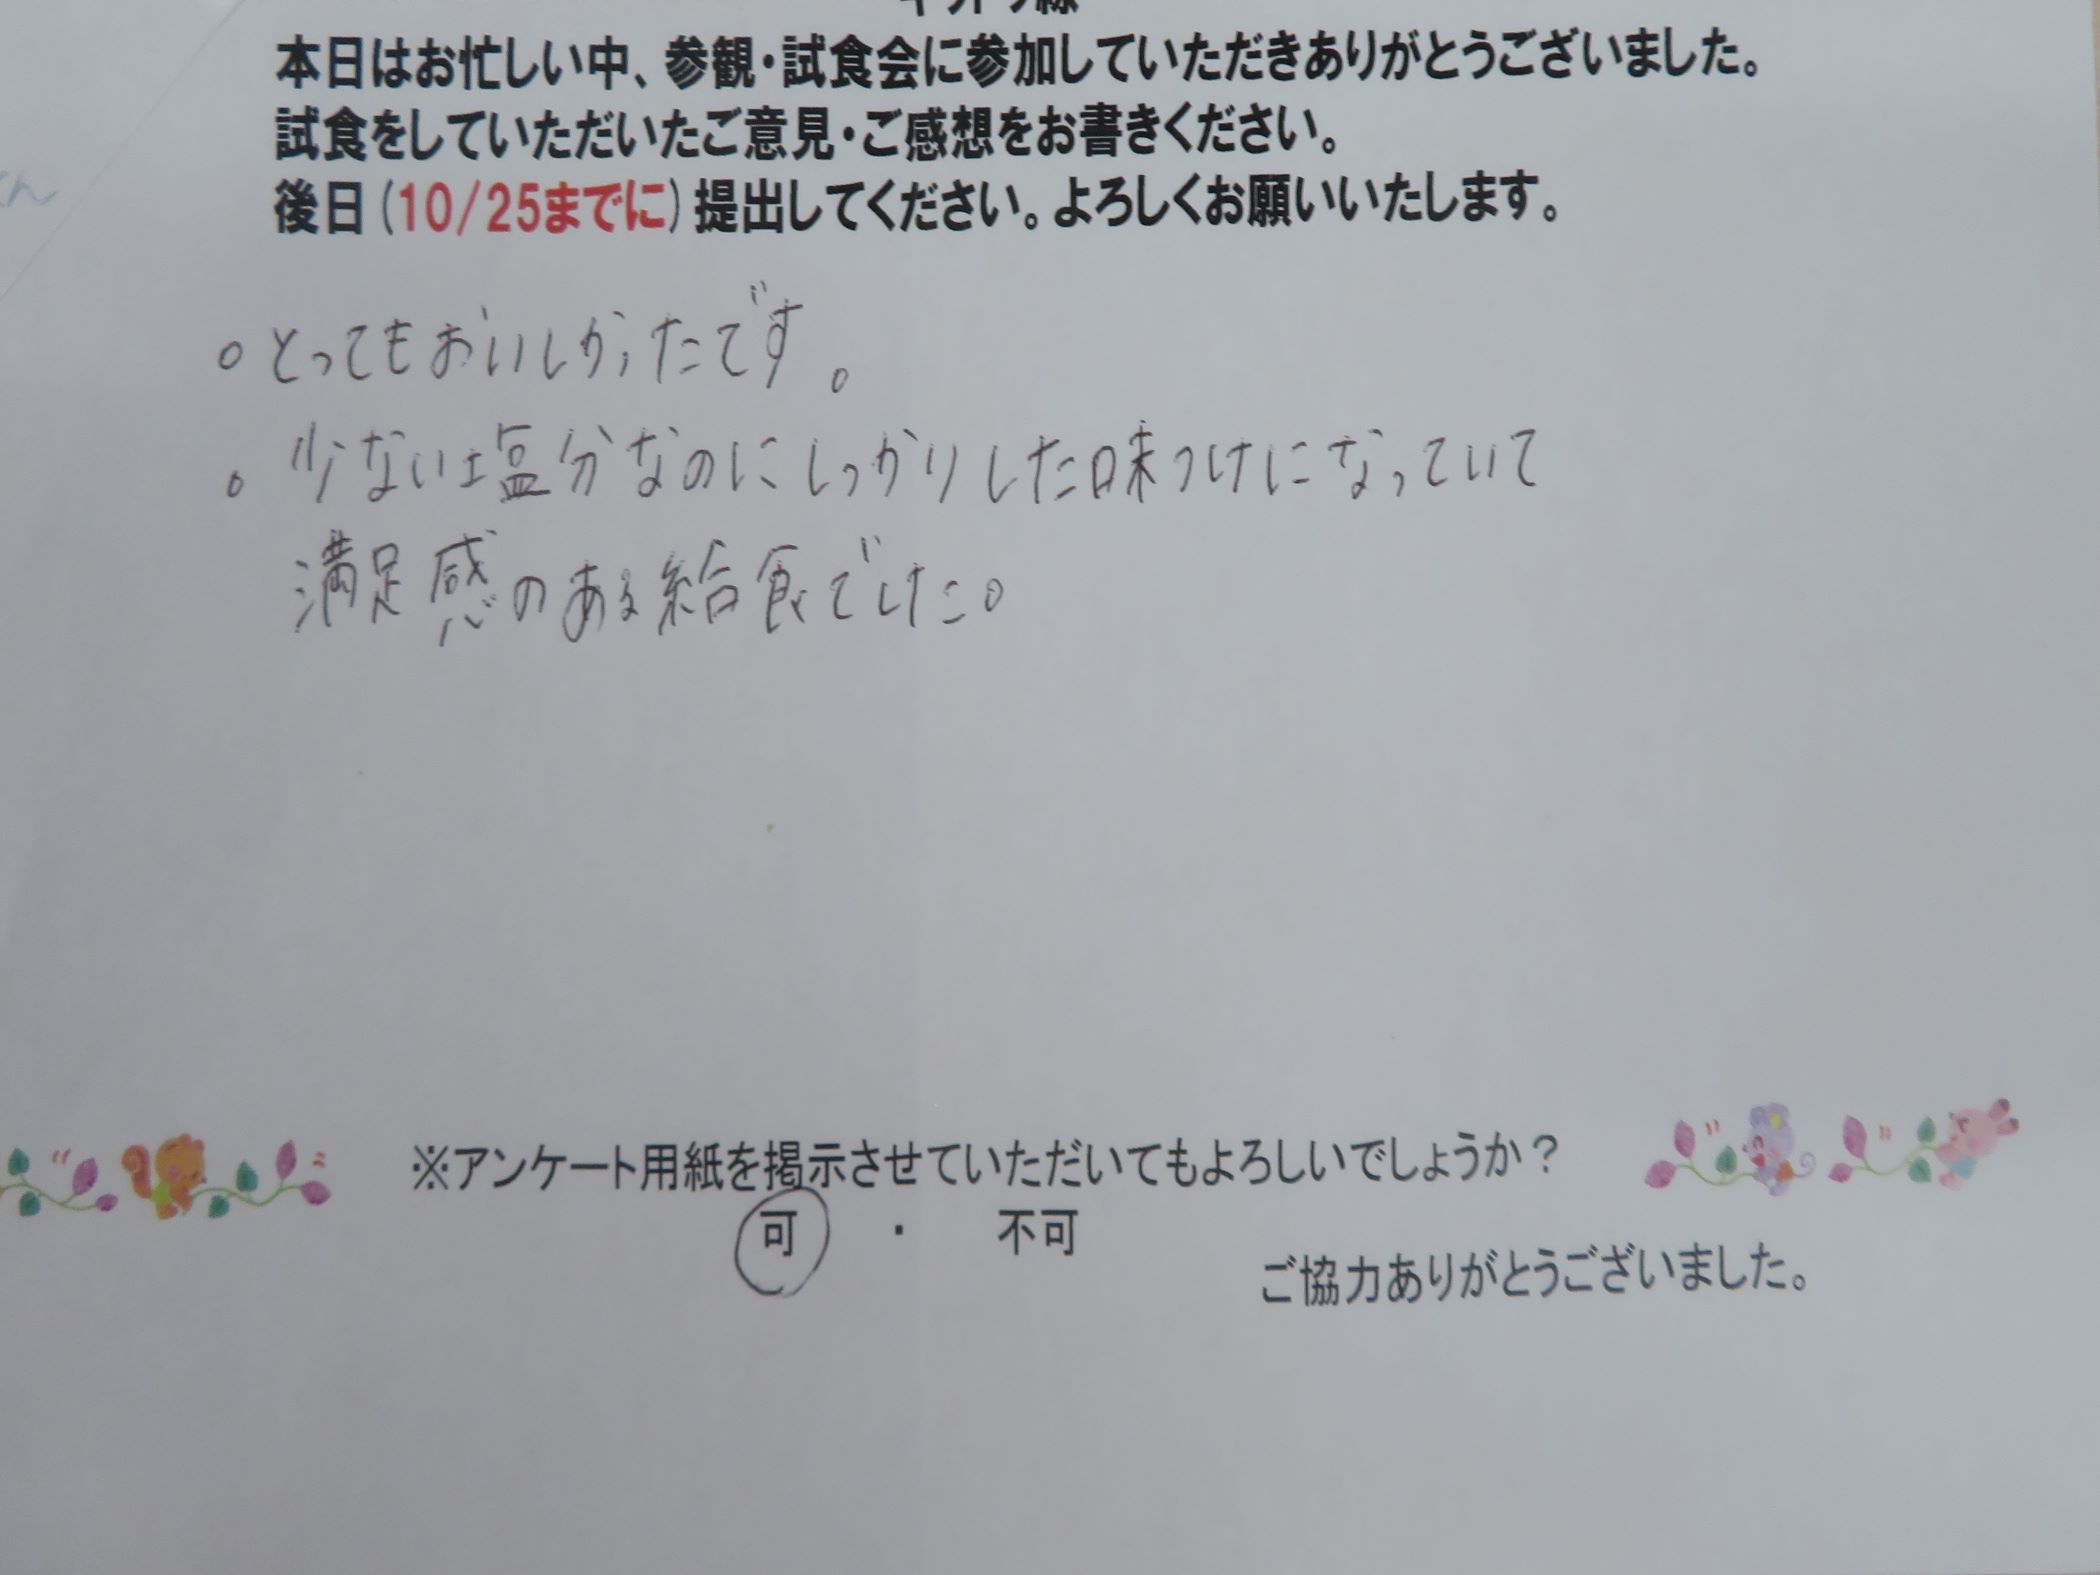 本日はお忙しい中、参観・試食会に参加していただきありがとうございました。
試食をしていただいたご意見・ご感想をお書きください。
後日(10/25までに)提出してください。よろしくお願いいたします。
○とってもおいしかったです。
○少ない塩分なのにしっかりした味つけになっていて
満足感のある給食でした。
※アンケート用紙を掲示させていただいてもよろしいでしょうか?
可 ・ 不可
ご協力ありがとうございました。